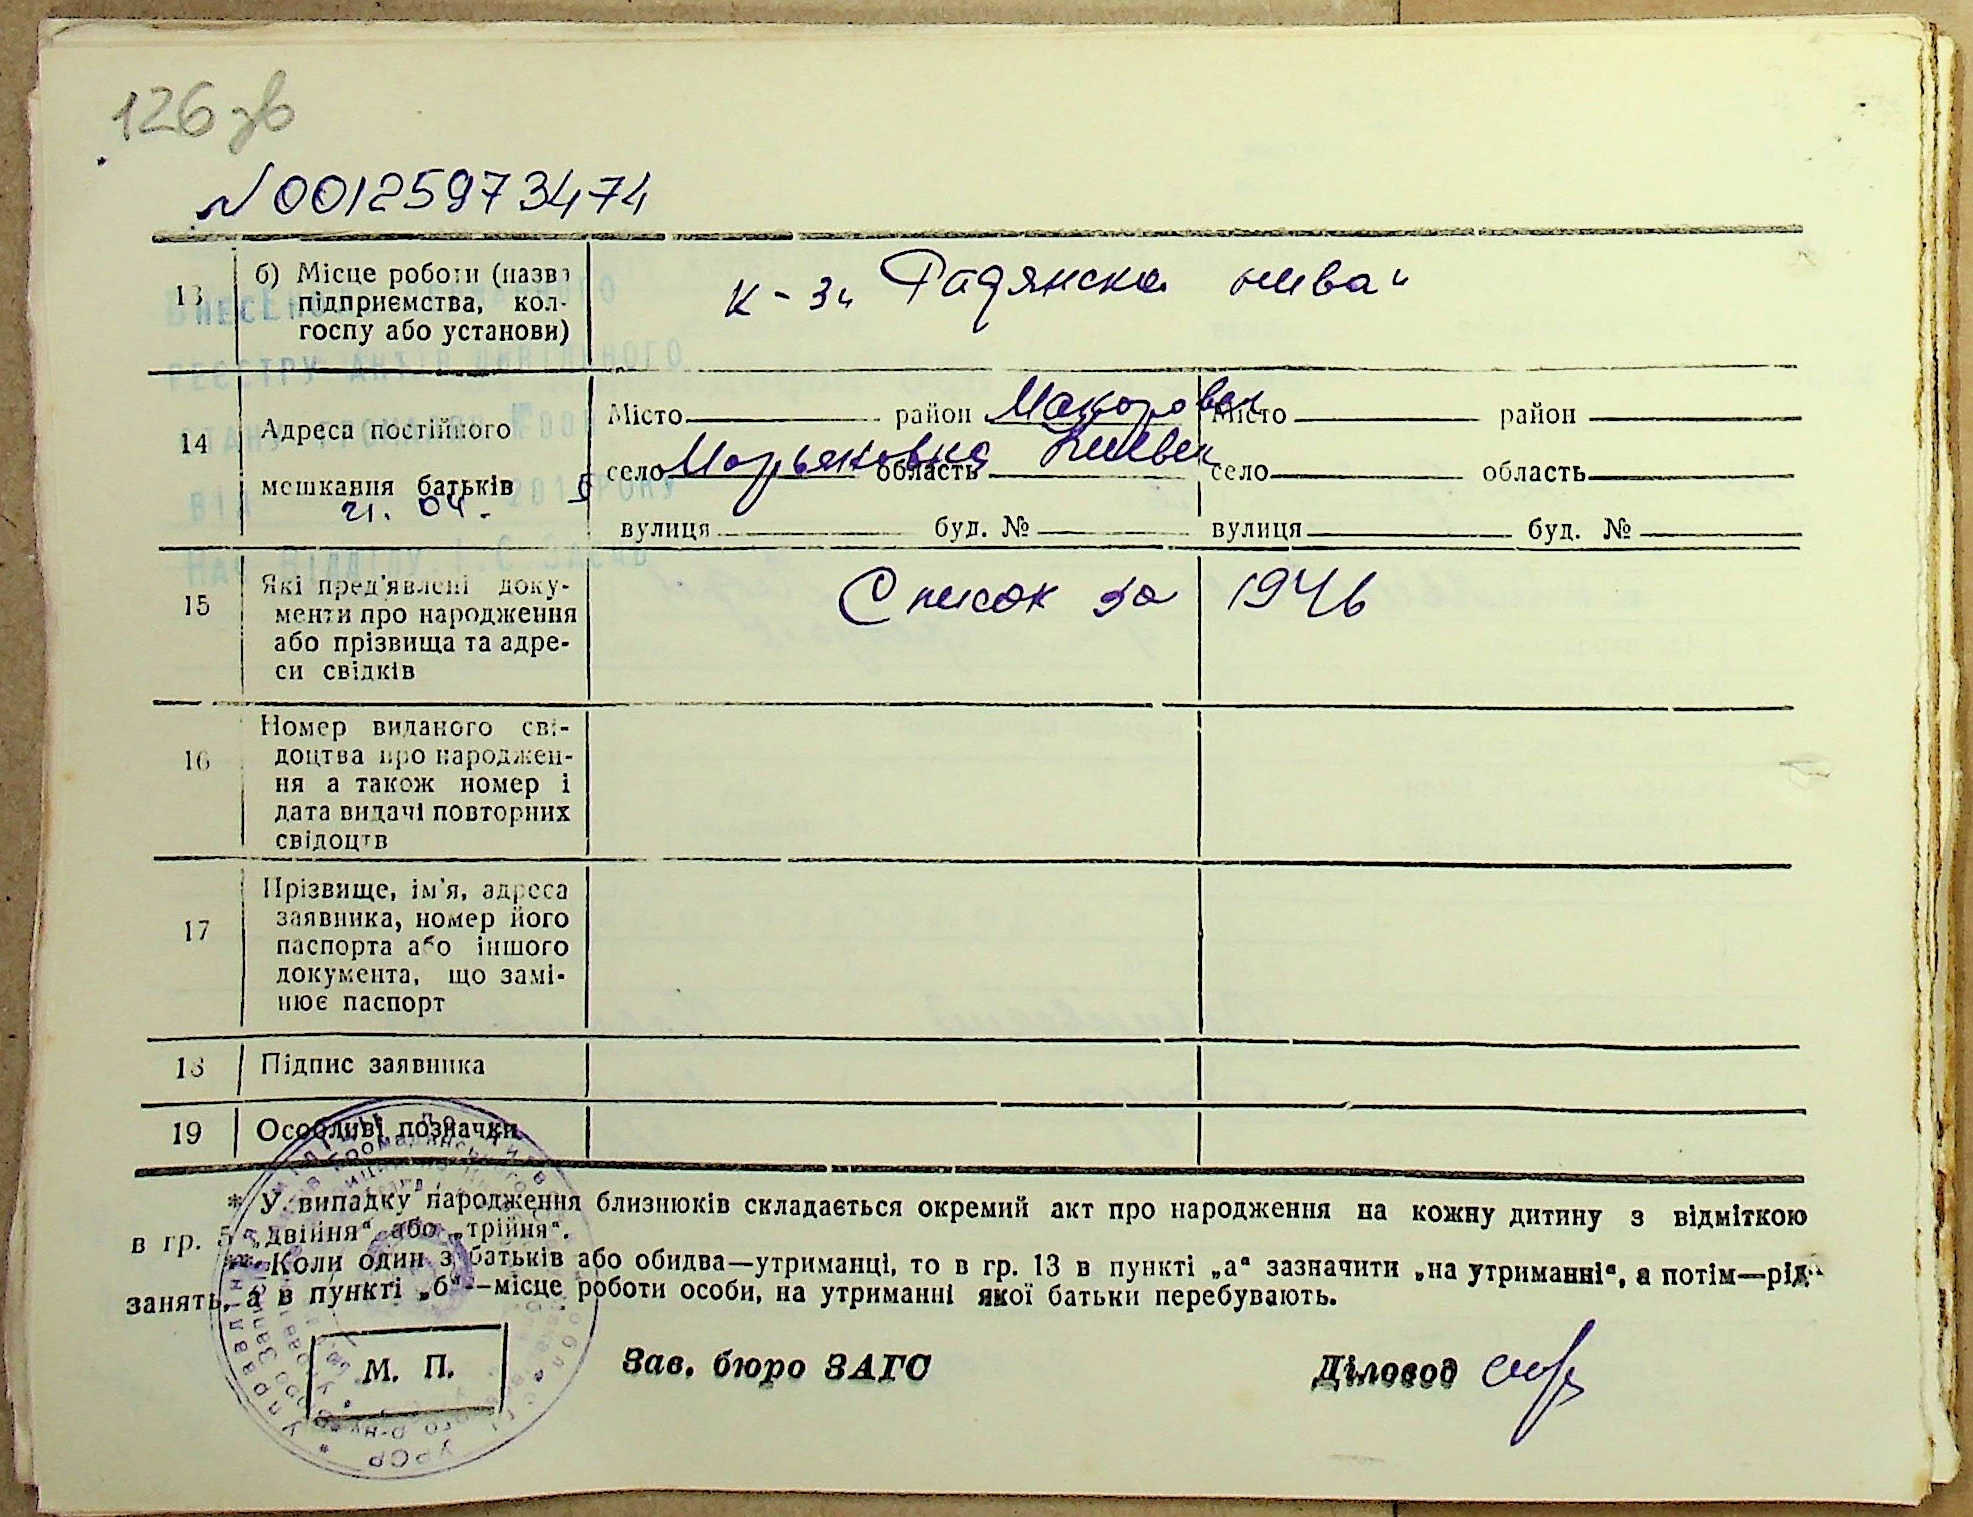 126 зв
N 00125973474
13 б) Місце роботи (назва
підприємства, кол-
госпу або установи)
к-з „ Радянска нива "
ВНЕСЕНО
РЕЄСТРУ АКТІВ ЦИВІЛЬНОГО
СТАНУ ГРОМАДЯН №00
ВІД 21. 04. 201 5 РОКУ
НАЧ ВІДДІЛУ
14 Адреса постійного
мешкання батьків
Місто район Макаровск Місто район
село Марьяновка область Киевск село область
вулиця буд. № вулиця буд. №
15 Які пред'явлені доку-
менти про народження
або прізвища та адре-
си свідків
Список за 1946
16 Номер виданого сві-
доцтва про народжен-
ня а також номер і
дата видачі повторних
свідоцтв
17 Прізвище, ім'я, адреса
заявника, номер його
паспорта або іншого
документа, що замі-
нює паспорт
18 Підпис заявника
19 Особливі позначки
* У випадку народження близнюків складається окремий акт про народження на кожну дитину з відміткою
в гр. 5 „двійня" або „трійня".
** Коли один з батьків або обидва—утриманці, то в гр. 13 в пункті „а" зазначити „на утриманні", а потім—рід
занять, а в пункті „б"—місце роботи особи, на утриманні якої батьки перебувають.
М. П. Зав. бюро ЗАГС Діловод
УРСР * Управління